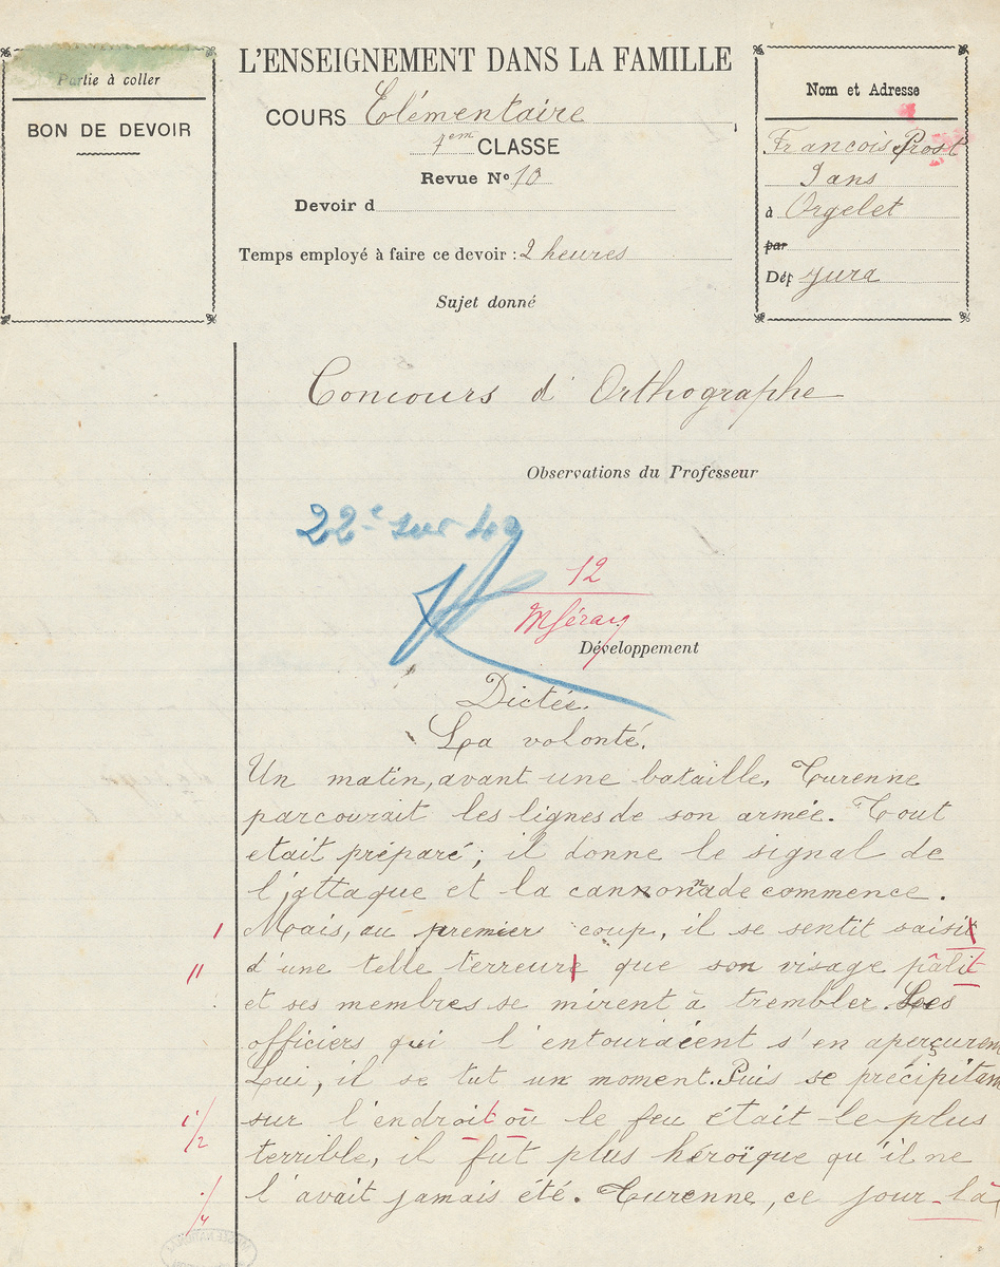 Partie à coller
BON DE DEVOIR
L'ENSEIGNEMENT DANS LA FAMILLE
COURS Elémentaire
7em CLASSE
Revue No 10
Devoir d
Temps employé à faire ce devoir : 2 heures
Sujet donné
Nom et Adresse
Francois Prost
9 ans
à Orgelet
par
Dép Jura
Concours d'Orthographe
Observations du Professeur
22e sur 49
12
Développement
Dictée.
La volonté.
Un matin, avant une bataille, Turenne
parcourait les lignes de son armée. Tout
etait préparé ; il donne le signal de
l'attaque et la cannonnade commence.
1 Mais, au premiers coup, il se sentit saisit
11 d'une telle terreure que son visage pâlit
et ses membres se mirent à trembler. Les
officiers qui l'entouraient s'en aperçuren
Lui, il se tut un moment. Puis se précipitan
1 1/2 sur l'endroit où le feu était le plus
terrible, il fût plus héroïque qu'il ne
1/4 l'avait jamais été. Turenne, ce jour-là,